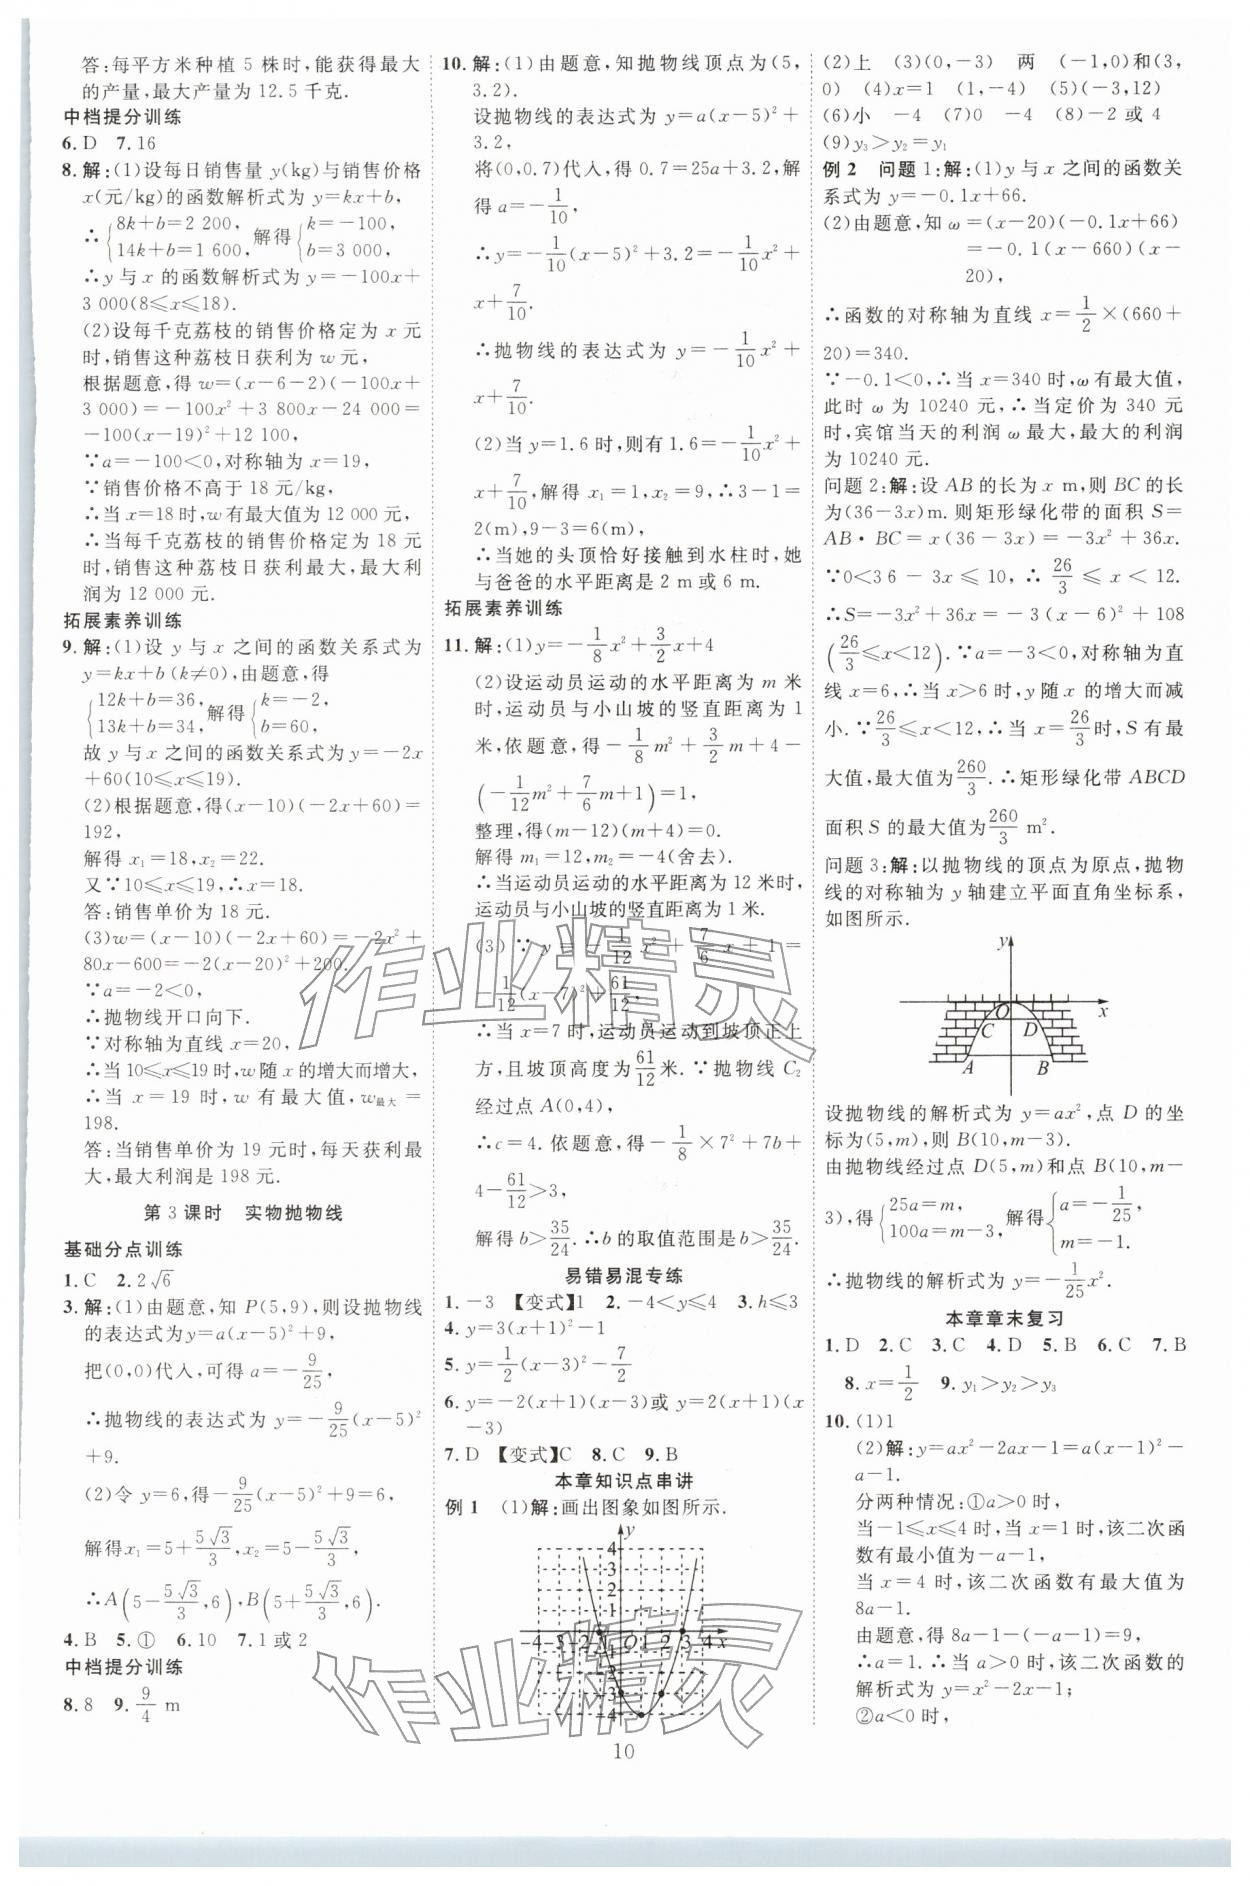 答:每平方米种植 5 株时,能获得最大
的产量,最大产量为 12.5 千克.
中档提分训练
6. D 7. 16
8. 解:(1)设每日销售量 y(kg)与销售价格
x(元/kg)的函数解析式为 y=kx+b,
∴{8k+b=2 200, 14k+b=1 600,解得{k=-100, b=3 000,
∴y 与 x 的函数解析式为 y=-100x+
3 000(8≤x≤18).
(2)设每千克荔枝的销售价格定为 x 元
时,销售这种荔枝日获利为 w 元,
根据题意,得 w=(x-6-2)(-100x+
3 000)=-100x²+3 800x-24 000=
-100(x-19)²+12 100,
∵a=-100<0,对称轴为 x=19,
∵销售价格不高于 18 元/kg,
∴当 x=18 时,w 有最大值为 12 000 元,
∴当每千克荔枝的销售价格定为 18 元
时,销售这种荔枝日获利最大,最大利
润为 12 000 元.
拓展素养训练
9. 解:(1)设 y 与 x 之间的函数关系式为
y=kx+b(k≠0),由题意,得
{12k+b=36, 13k+b=34,解得{k=-2, b=60,
故 y 与 x 之间的函数关系式为 y=-2x
+60(10≤x≤19).
(2)根据题意,得(x-10)(-2x+60)=
192,
解得 x₁=18,x₂=22.
又∵10≤x≤19,∴x=18.
答:销售单价为 18 元.
(3)w=(x-10)(-2x+60)=-2x²+
80x-600=-2(x-20)²+200.
∵a=-2<0,
∴抛物线开口向下.
∵对称轴为直线 x=20,
∴当 10≤x≤19 时,w 随 x 的增大而增大,
∴当 x=19 时,w 有最大值,w最大=
198.
答:当销售单价为 19 元时,每天获利最
大,最大利润是 198 元.
第 3 课时 实物抛物线
基础分点训练
1. C 2. 2√6
3. 解:(1)由题意,知 P(5,9),则设抛物线
的表达式为 y=a(x-5)²+9,
把(0,0)代入,可得 a=-9/25,
∴抛物线的表达式为 y=-9/25(x-5)²
+9.
(2)令 y=6,得-9/25(x-5)²+9=6,
解得x₁=5+5√3/3,x₂=5-5√3/3,
∴A(5-5√3/3,6),B(5+5√3/3,6).
4. B 5. ① 6. 10 7. 1 或 2
中档提分训练
8. 8 9. 9/4 m
10. 解:(1)由题意,知抛物线顶点为(5,
3.2).
设抛物线的表达式为 y=a(x-5)²+
3.2,
将(0,0.7)代入,得 0.7=25a+3.2,解
得 a=-1/10,
∴y=-1/10(x-5)²+3.2=-1/10x²+
x+7/10.
∴抛物线的表达式为 y=-1/10x²+
x+7/10.
(2)当 y=1.6 时,则有 1.6=-1/10x²+
x+7/10,解得 x₁=1,x₂=9,∴3-1=
2(m),9-3=6(m),
∴当她的头顶恰好接触到水柱时,她
与爸爸的水平距离是 2 m 或 6 m.
拓展素养训练
11. 解:(1)y=-1/8x²+3/2x+4
(2)设运动员运动的水平距离为 m 米
时,运动员与小山坡的竖直距离为 1
米,依题意,得-1/8m²+3/2m+4-
(-1/12m²+7/6m+1)=1,
整理,得(m-12)(m+4)=0.
解得 m₁=12,m₂=-4(舍去).
∴当运动员运动的水平距离为 12 米时,
运动员与小山坡的竖直距离为 1 米.
(3)∵y=-1/12x²+7/6x+1=
-1/12(x-7)²+61/12,
∴当 x=7 时,运动员运动到坡顶正上
方,且坡顶高度为61/12米.∵抛物线 C₂
经过点 A(0,4),
∴c=4. 依题意,得-1/8×7²+7b+
4-61/12>3,
解得 b>35/24.∴b 的取值范围是 b>35/24.
易错易混专练
1. -3 【变式】1 2. -4<y≤4 3. h≤3
4. y=3(x+1)²-1
5. y=1/2(x-3)²-7/2
6. y=-2(x+1)(x-3)或 y=2(x+1)(x
-3)
7. D 【变式】C 8. C 9. B
本章知识点串讲
例 1 (1)解:画出图象如图所示.
y
4
3
2
1
-4 -3 -2 -1 O 1 2 3 4 x
-1
-2
-3
-4
(2)上 (3)(0,-3) 两 (-1,0)和(3,
0) (4)x=1 (1,-4) (5)(-3,12)
(6)小 -4 (7)0 -4 (8)-2 或 4
(9)y₃>y₂=y₁
例 2 问题 1:解:(1)y 与 x 之间的函数关
系式为 y=-0.1x+66.
(2)由题意,知 ω=(x-20)(-0.1x+66)
=-0.1(x-660)(x-
20),
∴函数的对称轴为直线 x=1/2×(660+
20)=340.
∵-0.1<0,∴当 x=340 时,ω 有最大值,
此时 ω 为 10240 元,∴当定价为 340 元
时,宾馆当天的利润 ω 最大,最大的利润
为 10240 元.
问题 2:解:设 AB 的长为 x m,则 BC 的长
为(36-3x)m. 则矩形绿化带的面积 S=
AB·BC=x(36-3x)=-3x²+36x.
∵0<36-3x≤10,∴26/3≤x<12.
∴S=-3x²+36x=-3(x-6)²+108
(26/3≤x<12).∵a=-3<0,对称轴为直
线 x=6,∴当 x>6 时,y 随 x 的增大而减
小.∵26/3≤x<12,∴当 x=26/3时,S 有最
大值,最大值为260/3.∴矩形绿化带 ABCD
面积 S 的最大值为260/3 m².
问题 3:解:以抛物线的顶点为原点,抛物
线的对称轴为 y 轴建立平面直角坐标系,
如图所示.
y
O x
C D
A B
设抛物线的解析式为 y=ax²,点 D 的坐
标为(5,m),则 B(10,m-3).
由抛物线经过点 D(5,m)和点 B(10,m-
3),得{25a=m, 100a=m-3,解得{a=-1/25, m=-1.
∴抛物线的解析式为 y=-1/25x².
本章章末复习
1. D 2. C 3. C 4. D 5. B 6. C 7. B
8. x=1/2 9. y₁>y₂>y₃
10. (1)1
(2)解:y=ax²-2ax-1=a(x-1)²-
a-1.
分两种情况:①a>0 时,
当-1≤x≤4 时,当 x=1 时,该二次函
数有最小值为-a-1,
当 x=4 时,该二次函数有最大值为
8a-1.
由题意,得 8a-1-(-a-1)=9,
∴a=1.∴当 a>0 时,该二次函数的
解析式为 y=x²-2x-1;
②a<0 时,
10
作业精灵
作业精灵